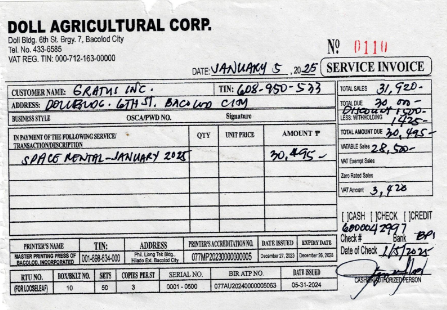 DOLL AGRICULTURAL CORP.
Doll Bldg. 6th St. Brgy. 7, Bacolod City
Tel. No. 433-5585
VAT REG. TIN: 000-712-163-00000
No 0110
DATE: JANUARY 5, 2025
SERVICE INVOICE
CUSTOMER NAME: GRATUS INC. TIN: 608-950-533
ADDRESS: DOLL BLDG. 6TH ST. BACOLOD CITY
BUSINESS STYLE OSCA/PWD NO. Signature
IN PAYMENT OF THE FOLLOWING SERVICE/TRANSACTION/DESCRIPTION QTY UNIT PRICE AMOUNT ₱
SPACE RENTAL - JANUARY 2025 30,495-
TOTAL SALES 31,920-
TOTAL DUE 30,000-
DISCOUNT 1500-
LESS: WITHHOLDING 1425-
TOTAL AMOUNT DUE 30,495-
VATABLE Sales 28,500-
VAT Exempt Sales
Zero Rated Sales
VAT Amount 3,420
[ ]CASH [ ]CHECK [ ]CREDIT
6000042997
Check # Bank BPI
Date of Check 1/5/2025
PRINTER'S NAME TIN: ADDRESS PRINTER'S ACCREDITATION NO. DATE ISSUED EXPIRY DATE
MASTER PRINTING PRESS OF BACOLOD, INCORPORATED
Phil. Liong Tek Bldg., Hilado Ext. Bacolod City
December 27, 2023
RTU NO. BOX/BKLT NO. SETS COPIES PER ST SERIAL NO. BIR ATP NO. DATE ISSUED
(FOR LOOSELEAF) 10 50 3 0001 - 0500 05-31-2024